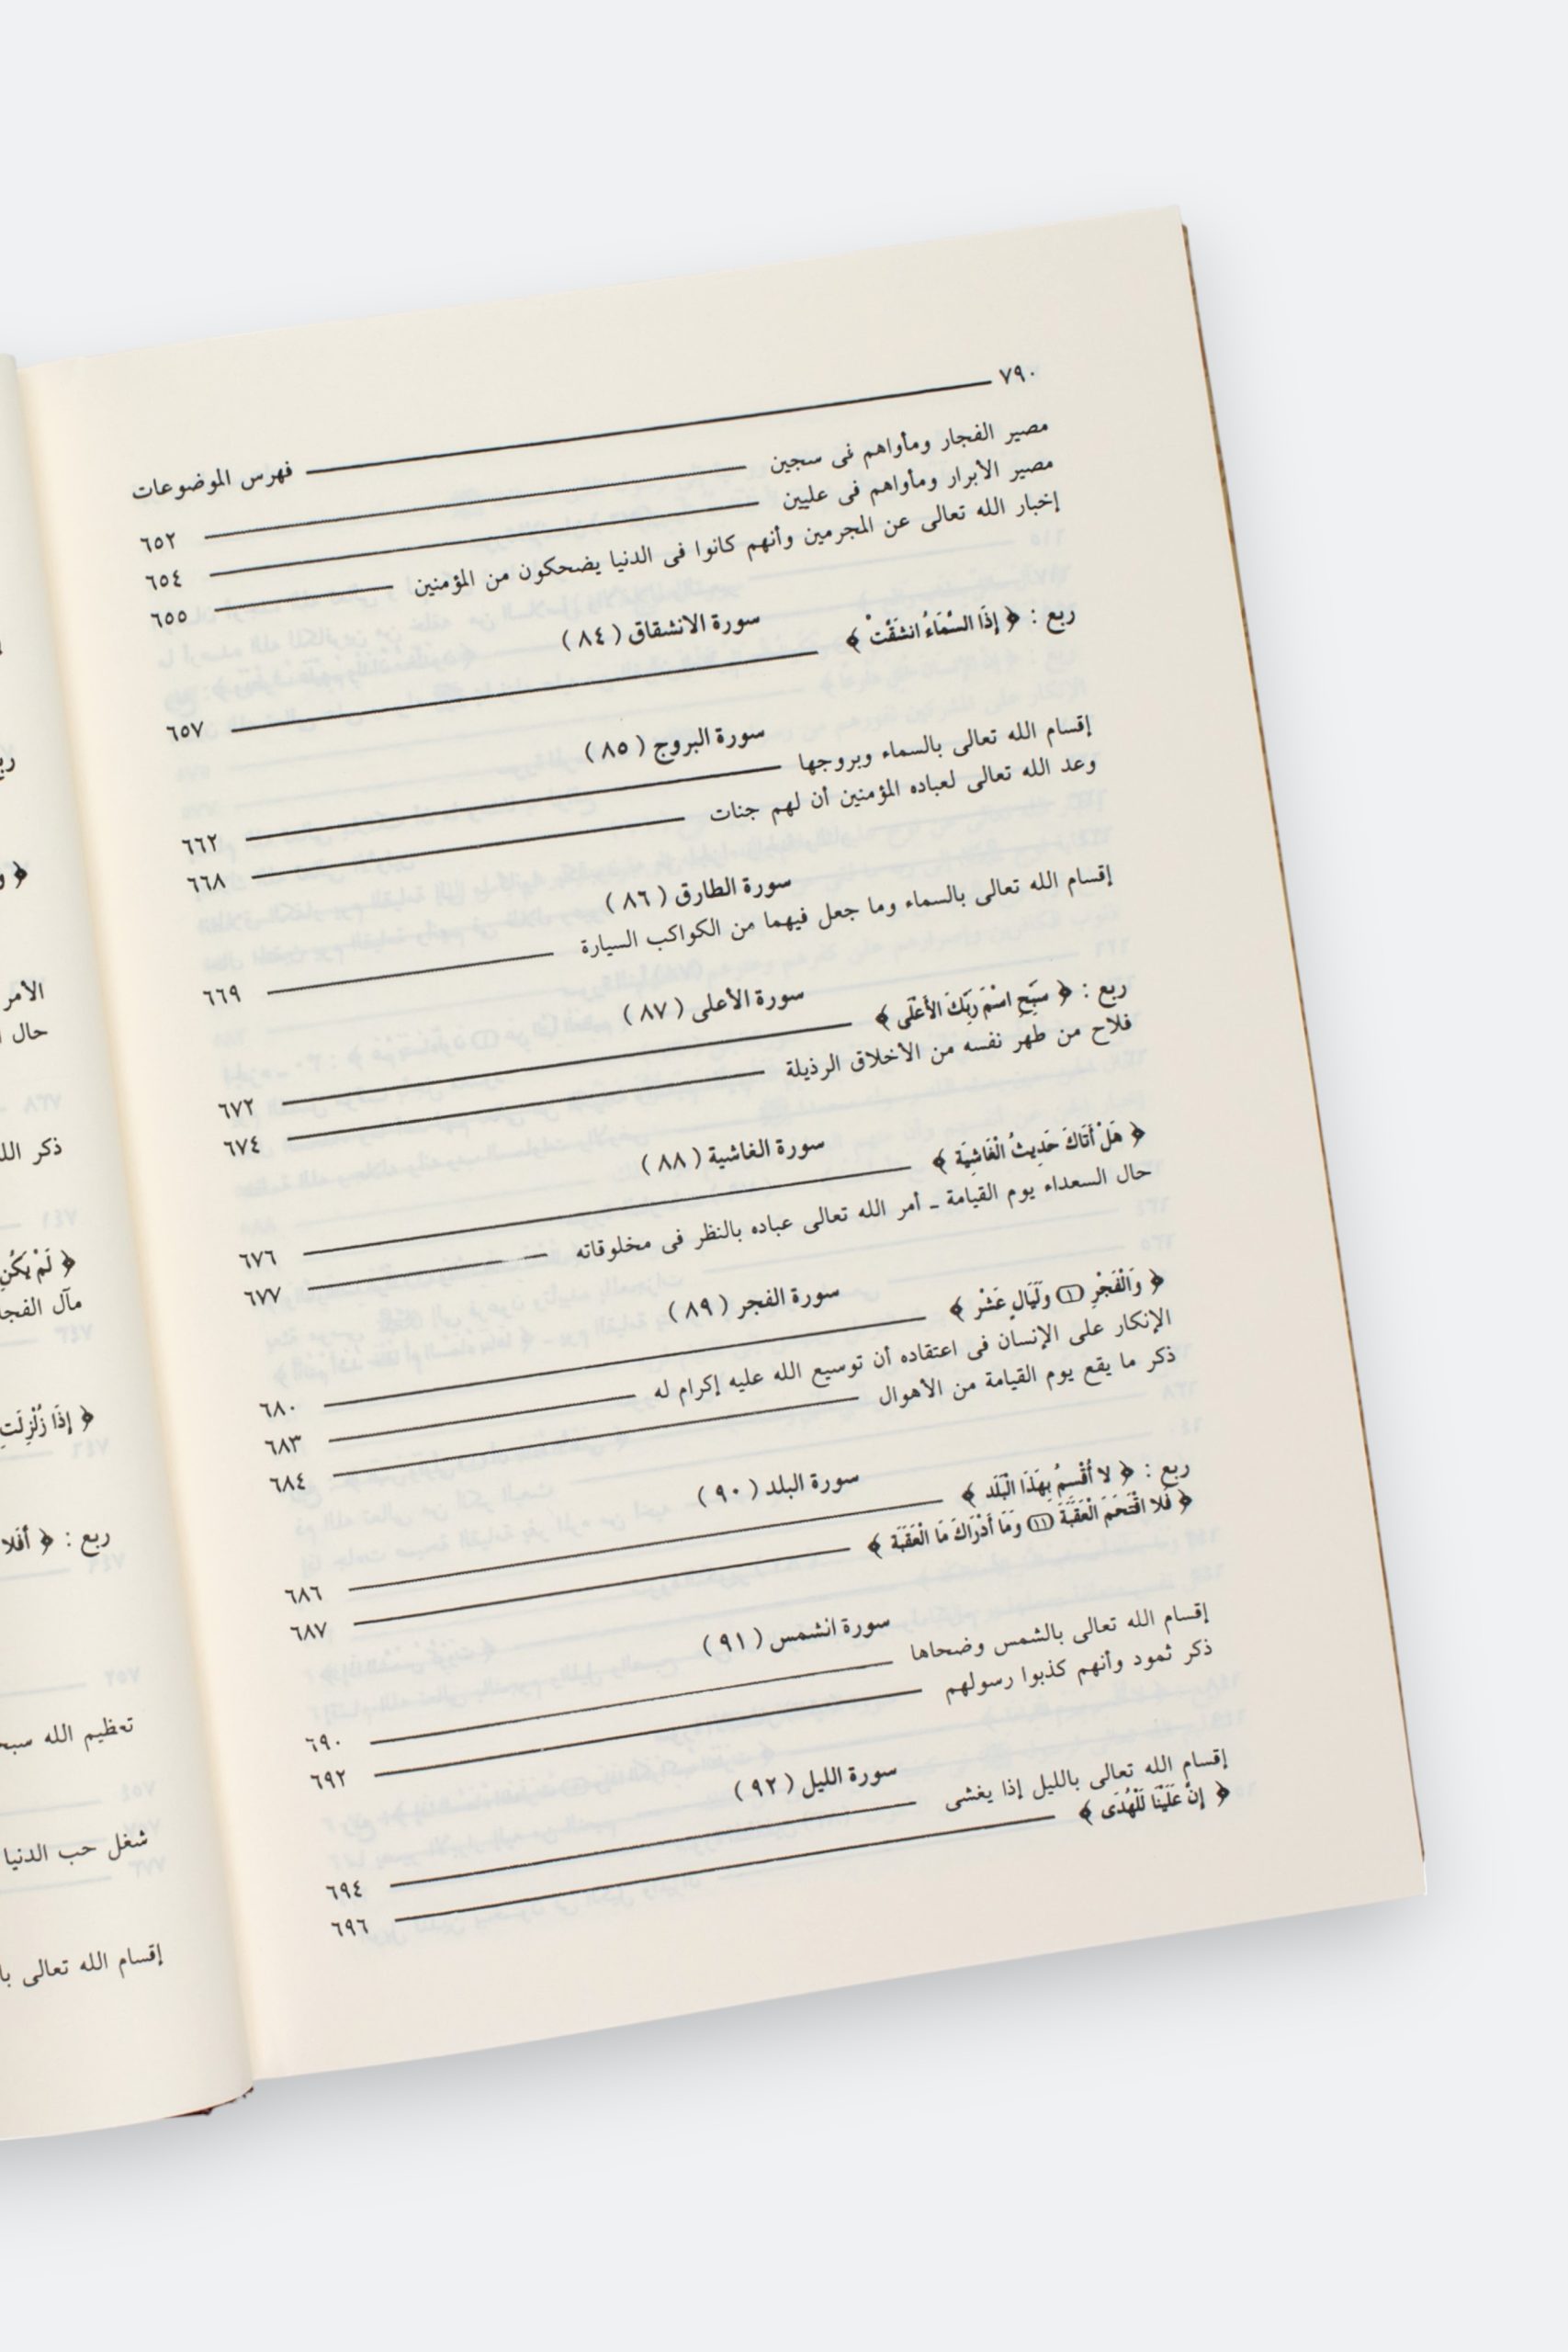 ٧٩٠ فهرس الموضوعات
مصير الفجار ومأواهم فى سجين ٦٥٢
مصير الأبرار ومأواهم فى عليين ٦٥٤
إخبار الله تعالى عن المجرمين وأنهم كانوا فى الدنيا يضحكون من المؤمنين ٦٥٥
سورة الانشقاق ( ٨٤ )
ربع : ﴿ إِذَا السَّمَاءُ انشَقَّتْ ﴾ ٦٥٧
سورة البروج ( ٨٥ )
إقسام الله تعالى بالسماء وبروجها ٦٦٢
وعد الله تعالى لعباده المؤمنين أن لهم جنات ٦٦٨
سورة الطارق ( ٨٦ )
إقسام الله تعالى بالسماء وما جعل فيهما من الكواكب السيارة ٦٦٩
سورة الأعلى ( ٨٧ )
ربع : ﴿ سَبِّحِ اسْمَ رَبِّكَ الأَعْلَى ﴾ ٦٧٢
فلاح من طهر نفسه من الأخلاق الرذيلة ٦٧٤
سورة الغاشية ( ٨٨ )
﴿ هَلْ أَتَاكَ حَدِيثُ الْغَاشِيَة ﴾ ٦٧٦
حال السعداء يوم القيامة ـ أمر الله تعالى عباده بالنظر فى مخلوقاته ٦٧٧
سورة الفجر ( ٨٩ )
﴿ وَالْفَجْرِ ١ وَلَيَالٍ عَشْر ﴾ ٦٨٠
الإنكار على الإنسان فى اعتقاده أن توسيع الله عليه إكرام له ٦٨٣
ذكر ما يقع يوم القيامة من الأهوال ٦٨٤
سورة البلد ( ٩٠ )
ربع : ﴿ لا أُقْسِمُ بِهَذَا الْبَلَد ﴾ ٦٨٦
﴿ فَلا اقْتَحَمَ الْعَقَبَةَ ١١ وَمَا أَدْرَاكَ مَا الْعَقَبَة ﴾ ٦٨٧
سورة الشمس ( ٩١ )
إقسام الله تعالى بالشمس وضحاها ٦٩٠
ذكر ثمود وأنهم كذبوا رسولهم ٦٩٢
سورة الليل ( ٩٢ )
إقسام الله تعالى بالليل إذا يغشى ٦٩٤
﴿ إِنَّ عَلَيْنَا لَلْهُدَى ﴾ ٦٩٦
الأمر
حال
﴿ لَمْ يَكُنِ
مآل
﴿ إِذَا زُلْزِلَتِ
ربع : ﴿ أَفَلا
تعظيم الله
شغل حب الدنيا
إقسام الله تعالى